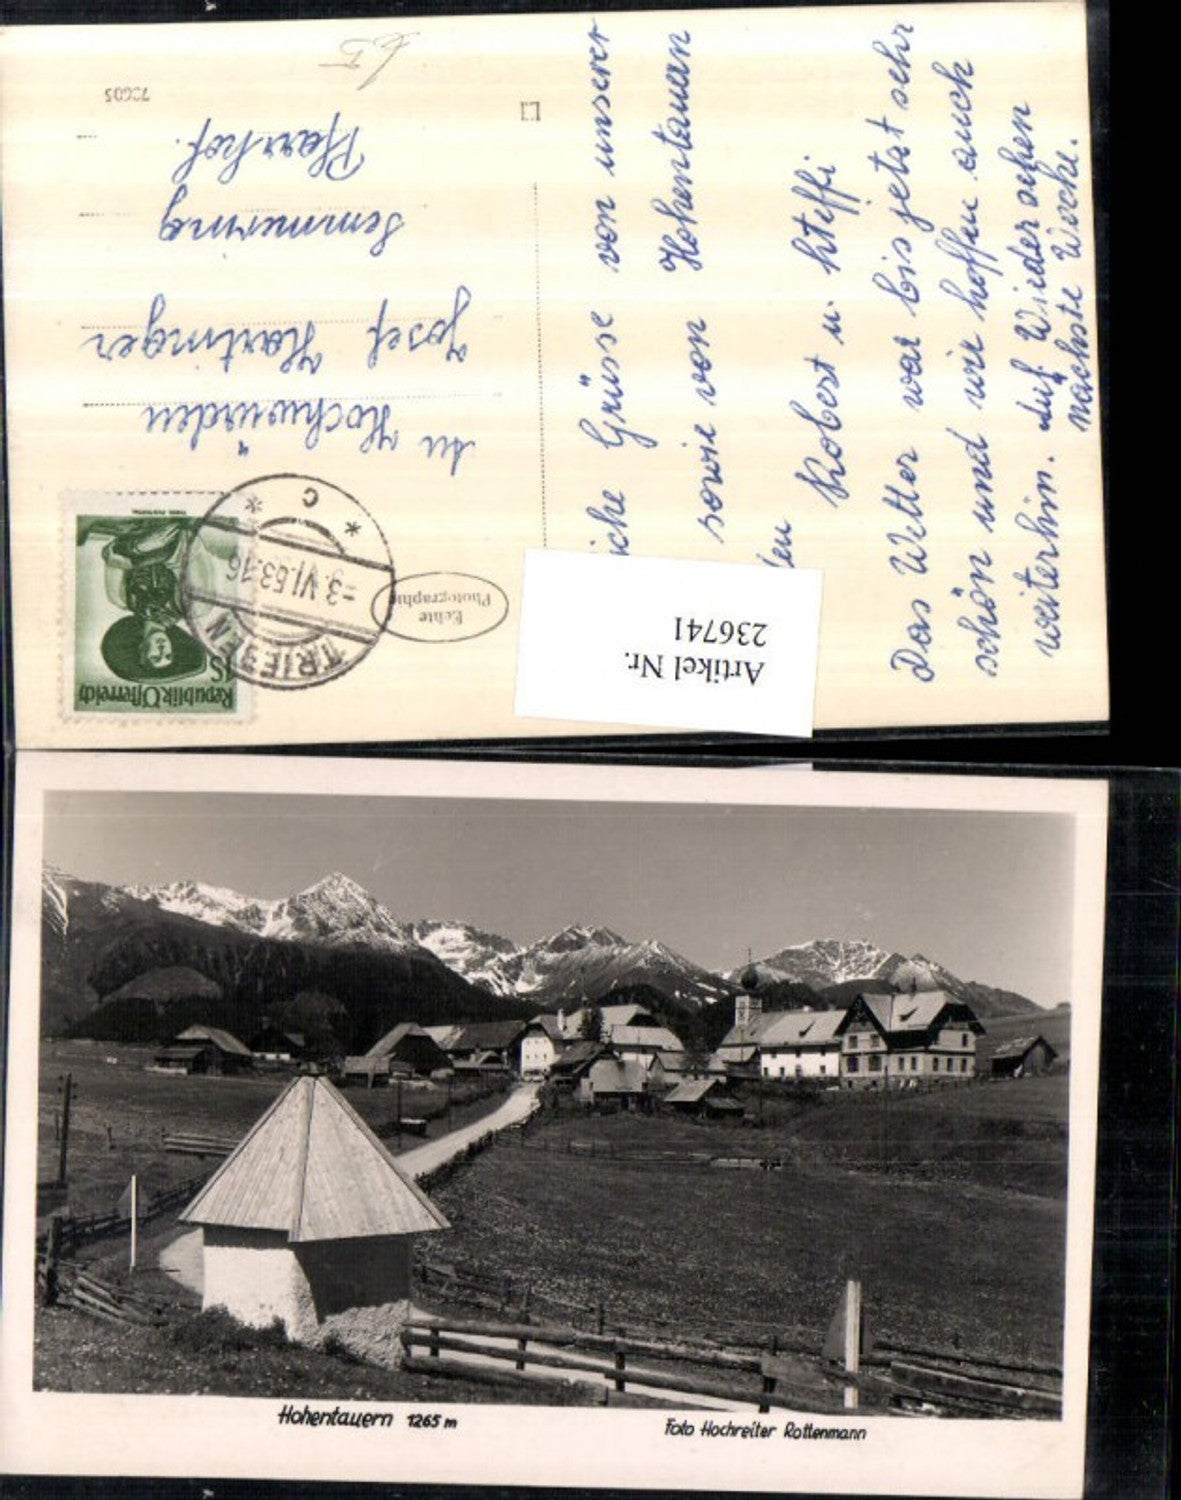 Republik Österreich
1S
TRIEBEN
-3.VI.53.16
* C *
Echte
Photographie
Artikel Nr.
236741
An Hochwürden
Josef Hartinger
Semmering
Pfarrhof.
73605
Grüsse von unserer
sowie von Hohentauern
Robert u. Steffi
Das Wetter war bis jetzt sehr
schön und wir hoffen auch
weiterhin. Auf Wiedersehen
nächste Woche.
Hohentauern 1265 m
Foto Hochreiter Rottenmann